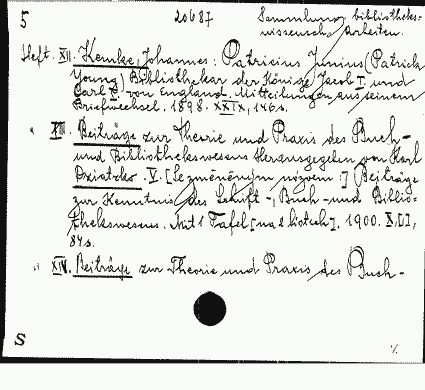 5 20687 Sammlung bibliotheks-
wissensch. Arbeiten.
Heft. XII. Kemke, Johannes: Patricius Junius (Patrick
Young) Bibliothekar der Könige Jacob I. und
Carl I. von England. Mitteilungen aus seinem
Briefwechsel. 1898. XXIX, 146s.
" XIII. Beiträge zur Theorie und Praxis des Buch-
und Bibliothekswesens Herausgegeben von Karl
Dziatzko. V. [Se změněným názvem:] Beiträge
zur Kenntnis des Schrift-, Buch- und Biblio-
thekswesens. Mit 1 Tafel [na 1 listech]. 1900. X, [I],
84s.
" XIV. Beiträge zur Theorie und Praxis des Buch-
S ./.